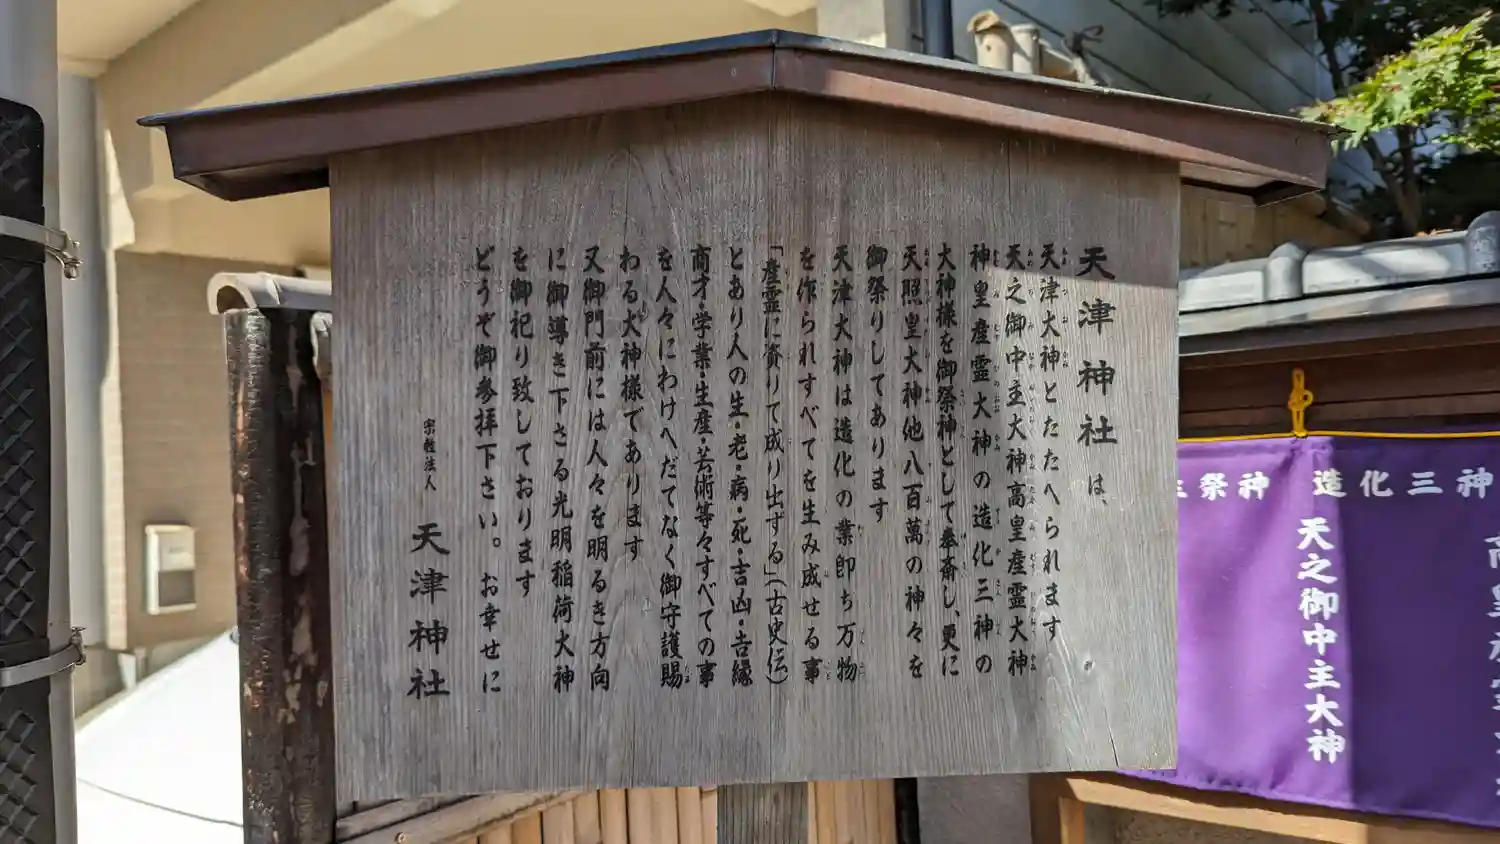 天津神社は、
天津大神とたたへられます
天之御中主大神高皇産霊大神
神皇産霊大神の造化三神の
大神様を御祭神として奉斎し、更に
天照皇大神他八百萬の神々を
御祭りしてあります
天津大神は造化の業即ち万物
を作られすべてを生み成せる事
「産霊に資りて成り出ずる」(古史伝)
とあり人の生・老・病・死・吉凶・𠮷縁
商才・学業・生産・芸術等々すべての事
を人々にわけへだてなく御守護賜
わる大神様であります
又御門前には人々を明るき方向
に御導き下さる光明稲荷大神
を御祀り致しております
どうぞ御参拝下さい。お幸せに
宗教法人 天津神社
祭神 造化三神
天之御中主大神